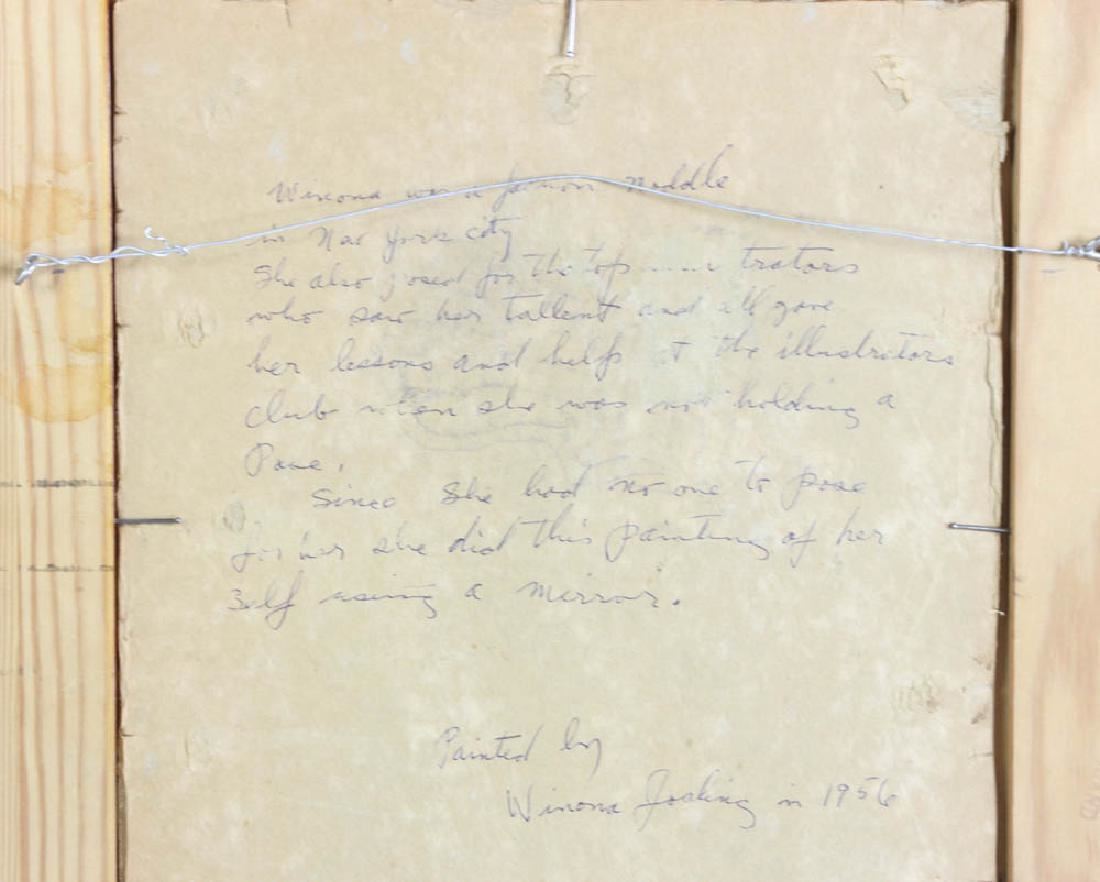 Winona was a famous moddle
in New York city
She also posed for the top trators
who saw her tallent and all gave
her lessons and help at the illustrators
club when she was not holding a
Pose.
Since She had no one to pose
for her she did this painting of her
Self using a mirror.
Painted by
Winona in 1956